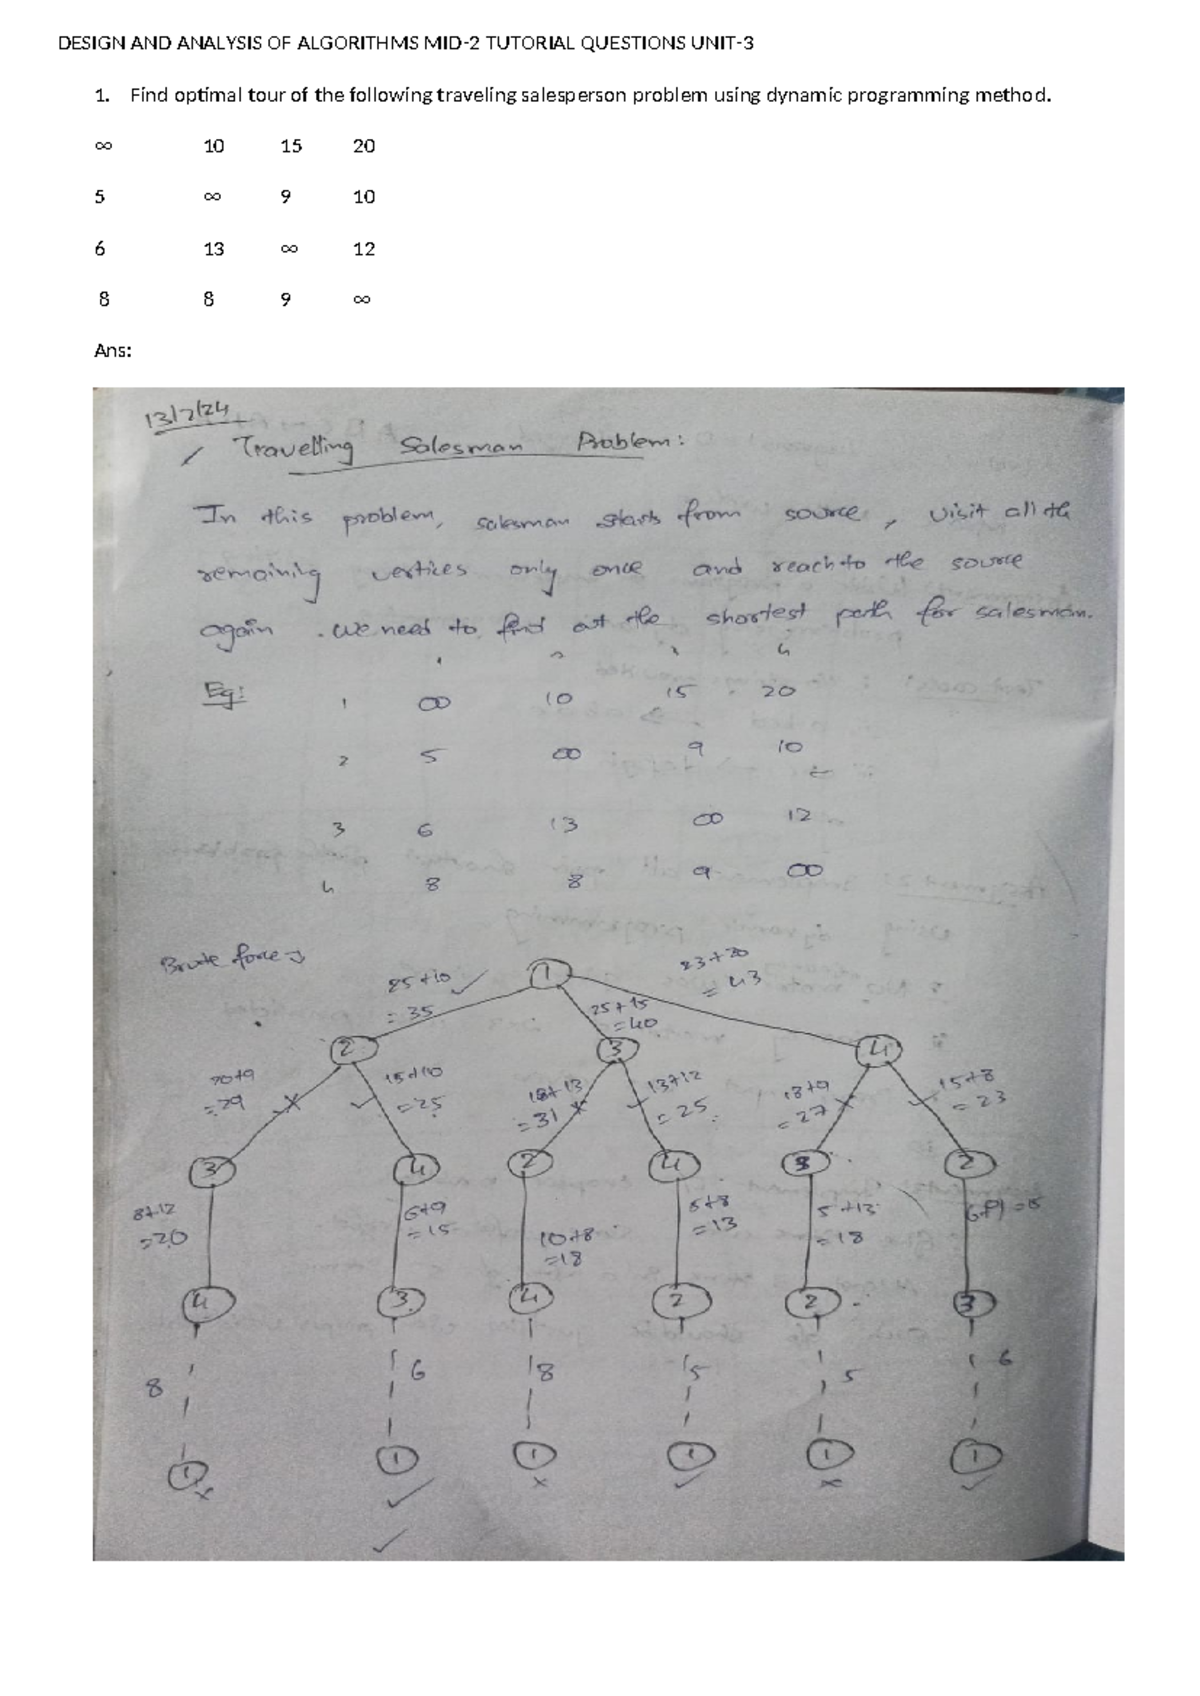 DESIGN AND ANALYSIS OF ALGORITHMS MID-2 TUTORIAL QUESTIONS UNIT-3
1. Find optimal tour of the following traveling salesperson problem using dynamic programming method.
∞ 10 15 20
5 ∞ 9 10
6 13 ∞ 12
8 8 9 ∞
Ans:
13/7/24
Travelling Salesman Problem:
In this problem, salesman starts from source, visit all the
remaining vertices only once and reach to the source
again. We need to find out the shortest path for salesman.
4
Eg: 1 ∞ 10 15 20
2 5 ∞ 9 10
3 6 13 ∞ 12
4 8 8 9 ∞
Brute force
25+10 = 35
1
25+15 = 40
23+20 = 43
2 3 4
20+9 = 29
15+10 = 25
18+13 = 31
13+12 = 25
18+9 = 27
15+8 = 23
3 4 2 4 3 2
8+12 = 20
6+9 = 15
10+8 = 18
5+8 = 13
5+13 = 18
6+9 = 15
4 3 4 2 2 3
8 6 8 5 5 6
1 1 1 1 1 1